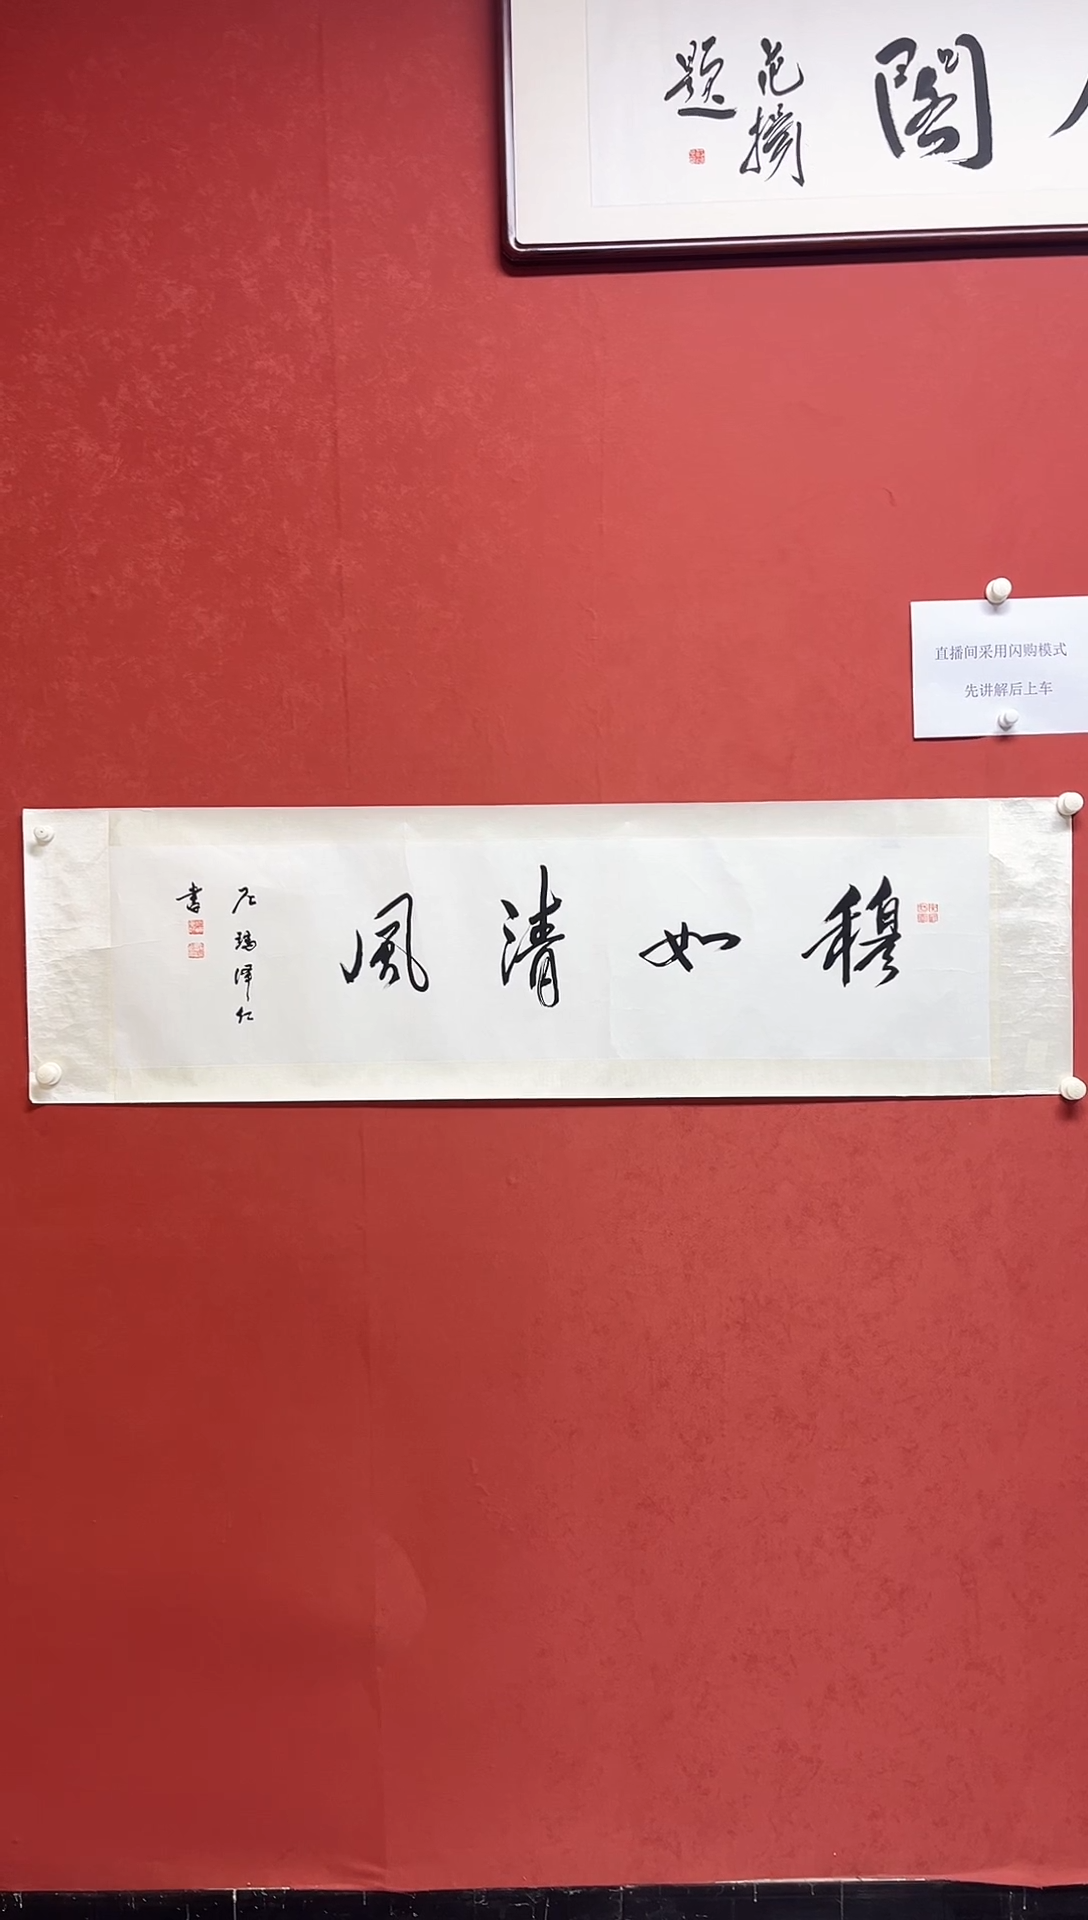 閣
范揚
題
直播间采用闪购模式
先讲解后上车
穆如清風
澤仁
書